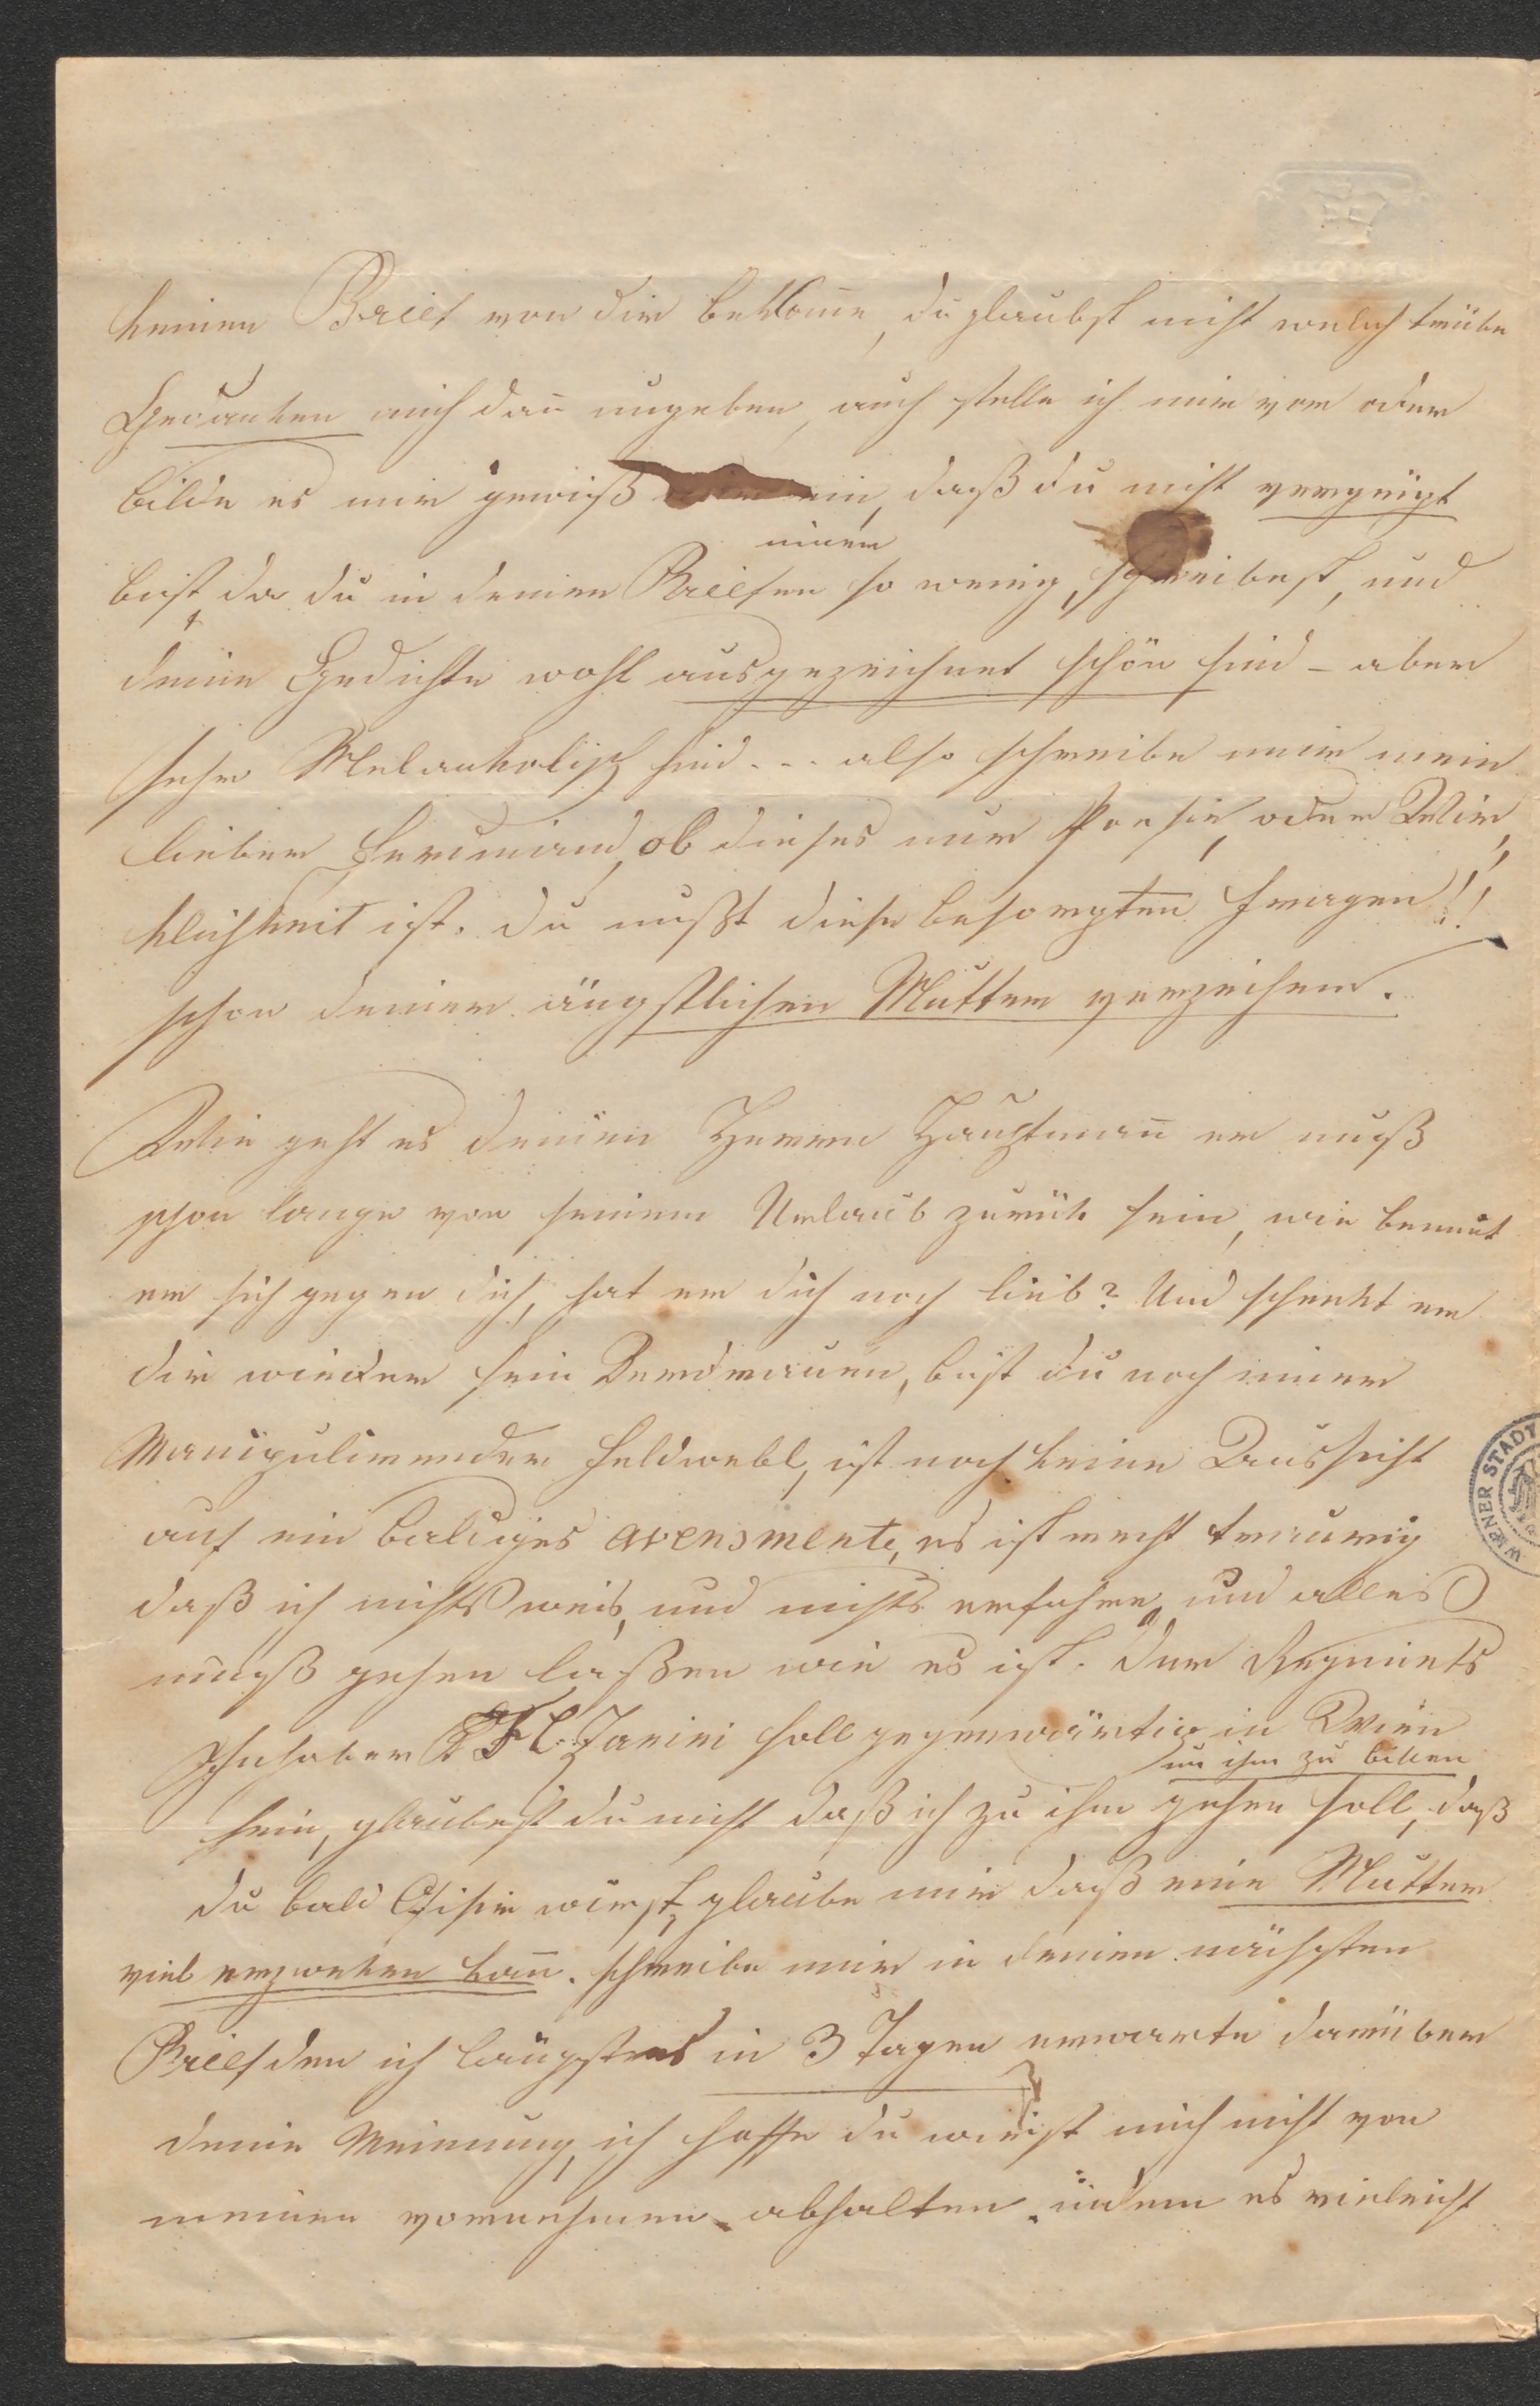 keinen Brief von dir bekome, du glaubst nicht welch trübe
Gedanken mich dan umgeben, auch stelle ich mir vor oder
bilde es mir gewiß ein, daß du nicht vergnügt
bist, da du in deinen Briefen so wenig, schreibest, und
immer
deine Gedichte wohl ausgezeichnet schön sind - aber
sehr Melankolisch sind. . . also schreibe mir mein
lieber Ferdinand, ob dieses nur Poesie, oder Wir,,
klichkeit ist. du mußt diese besorgten Fragen!!
schon deiner ängstlichen Mutter verzeihen.
Wie geht es deinen Herrn Hauptman er muß
schon lange von seinem Urlaub zurük sein, wie benimt
er sich gegen dich, hat er dich noch lieb? Und schenkt er
dir wieder sein Vertrauen, bist du noch immer
Manipulirender Feldwebl, ist noch keine Aussicht
auf ein baldiges avensmente, es ist recht traurig
daß ich nichts weis, und nichts erfahre, und alles
muß gehen laßen wie es ist. der Regiments
Inhaber FL. Janini soll gegenwärtig in Wien
um ihm zu bitten
sein, glaubest du nicht daß ich zu ihm gehen soll, daß
du bald Ofisir wirst, glaube mir daß eine Mutter
viel erzweken kan. schreibe mir in deinen nächsten
Brief den ich längstens in 3 Tagen erwarte darüber
deine Meinung, ich hoffe du wirst mich nicht von
meinen vornehmen abhalten, indem es vieleicht
WIENER STADT